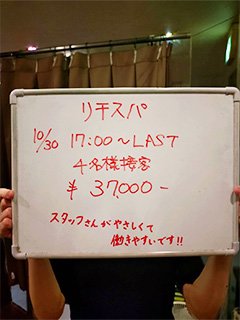 リチスパ
10/30 17:00〜LAST
4名様接客
¥ 37,000-
スタッフさんがやさしくて
働きやすいです!!